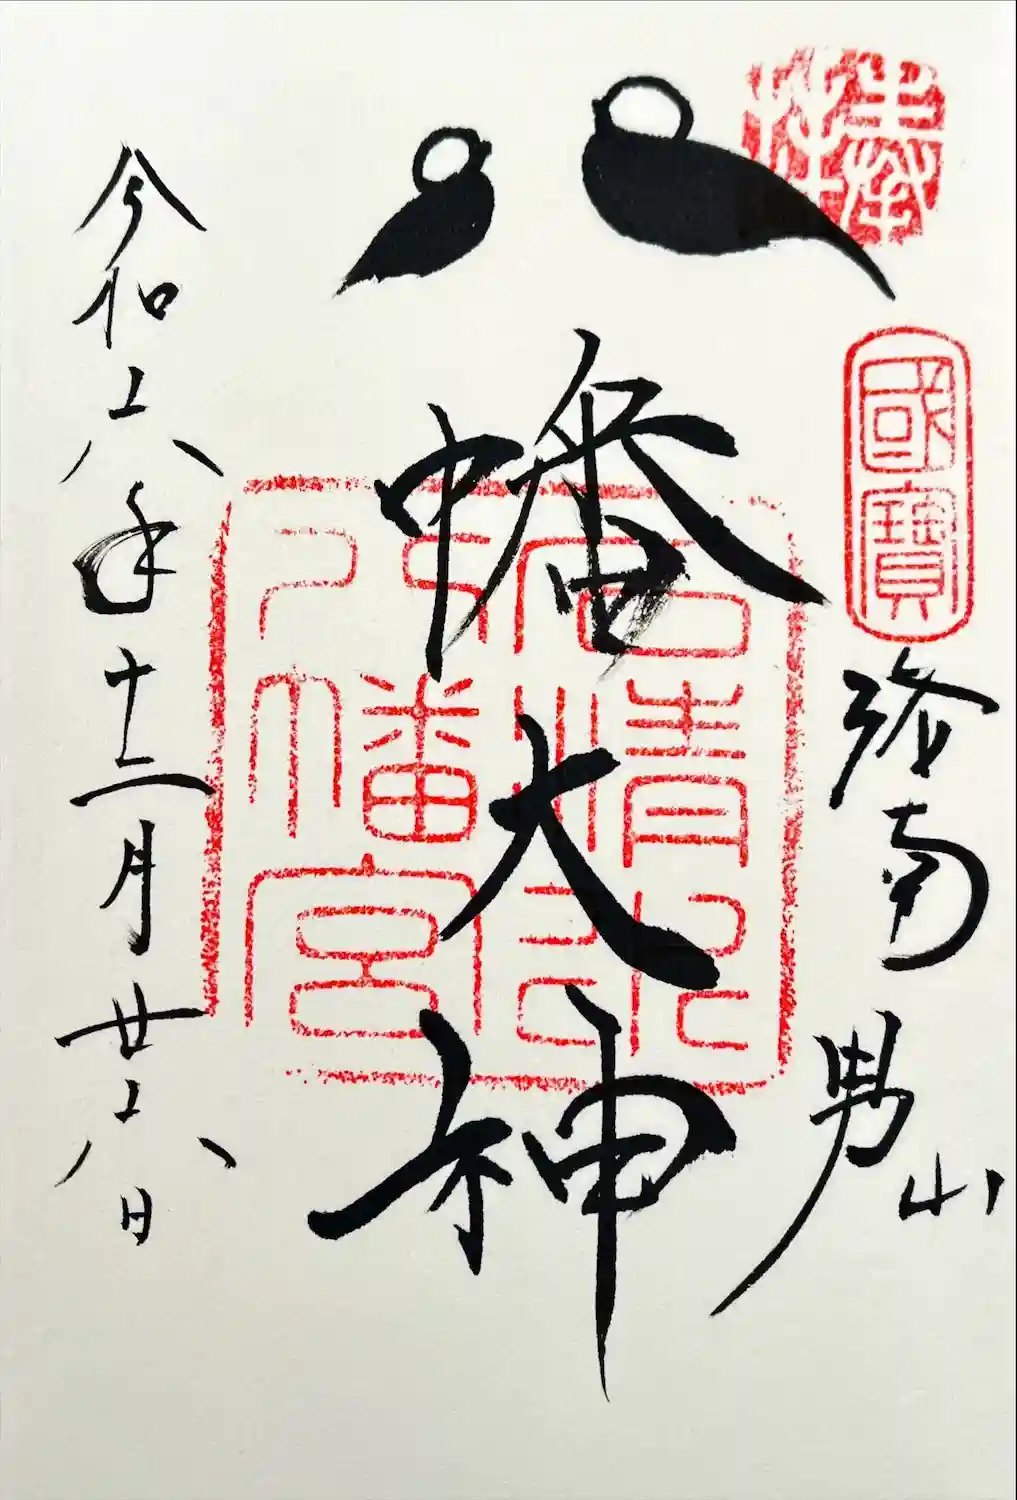 奉拝
國寶
洛南男山
八幡大神
石清水
八幡宮
令和六年十二月廿六日